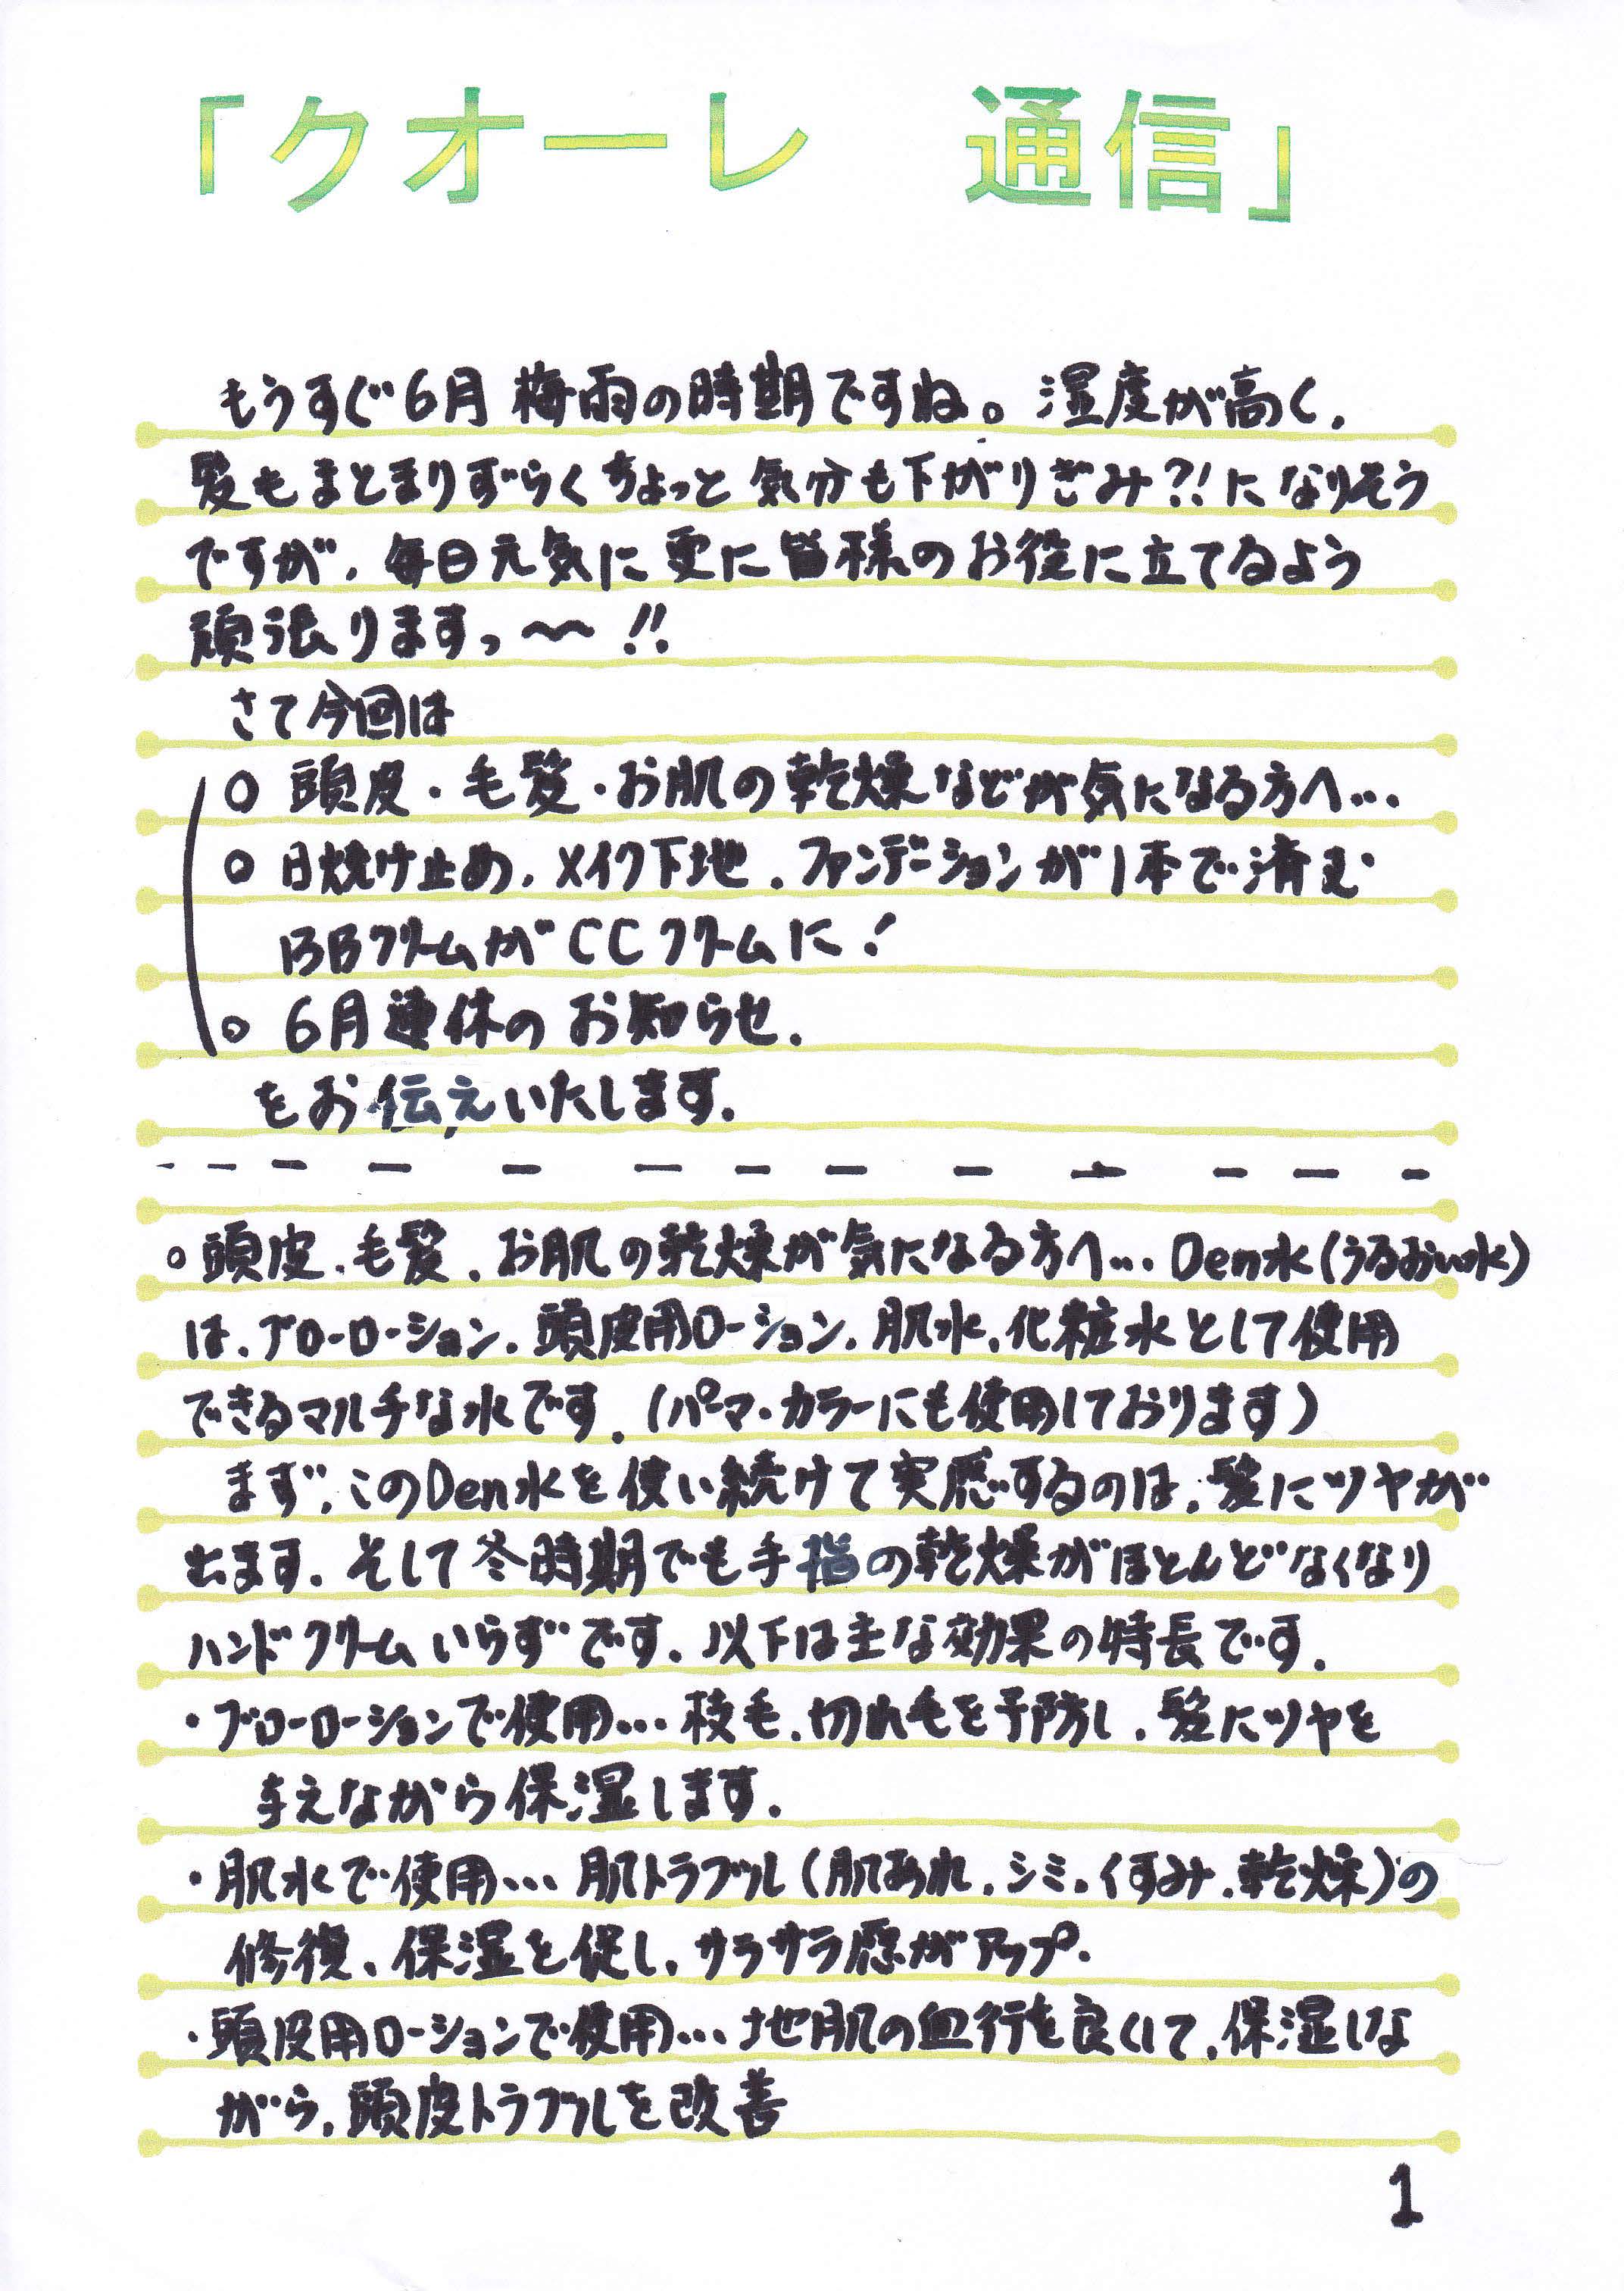 「クオーレ　通信」
もうすぐ6月 梅雨の時期ですね。湿度が高く、
髪もまとまりずらくちょっと気分も下がりぎみ?!になりそう
ですが、毎日元気に更に皆様のお役に立てるよう
頑張りますっ〜!!
さて今回は
○ 頭皮・毛髪・お肌の乾燥などが気になる方へ…
○ 日焼け止め、メイク下地、ファンデーションが1本で済む
BBクリームがCCクリームに!
○ 6月連休のお知らせ、
をお伝えいたします。
○頭皮、毛髪、お肌の乾燥が気になる方へ…Den水(うるおい水)
は、ブローローション、頭皮用ローション、肌水、化粧水として使用
できるマルチな水です。(パーマ・カラーにも使用しております)
まず、このDen水を使い続けて実感するのは、髪にツヤが
出ます。そして冬時期でも手指の乾燥がほとんどなくなり
ハンドクリームいらずです。以下は主な効果の特長です。
・ブローローションで使用…枝毛、切れ毛を予防し、髪にツヤを
与えながら保湿します。
・肌水で使用…肌トラブル(肌あれ、シミ、くすみ、乾燥)の
修復、保湿を促し、サラサラ感がアップ。
・頭皮用ローションで使用…地肌の血行を良くして、保湿しな
がら、頭皮トラブルを改善
1